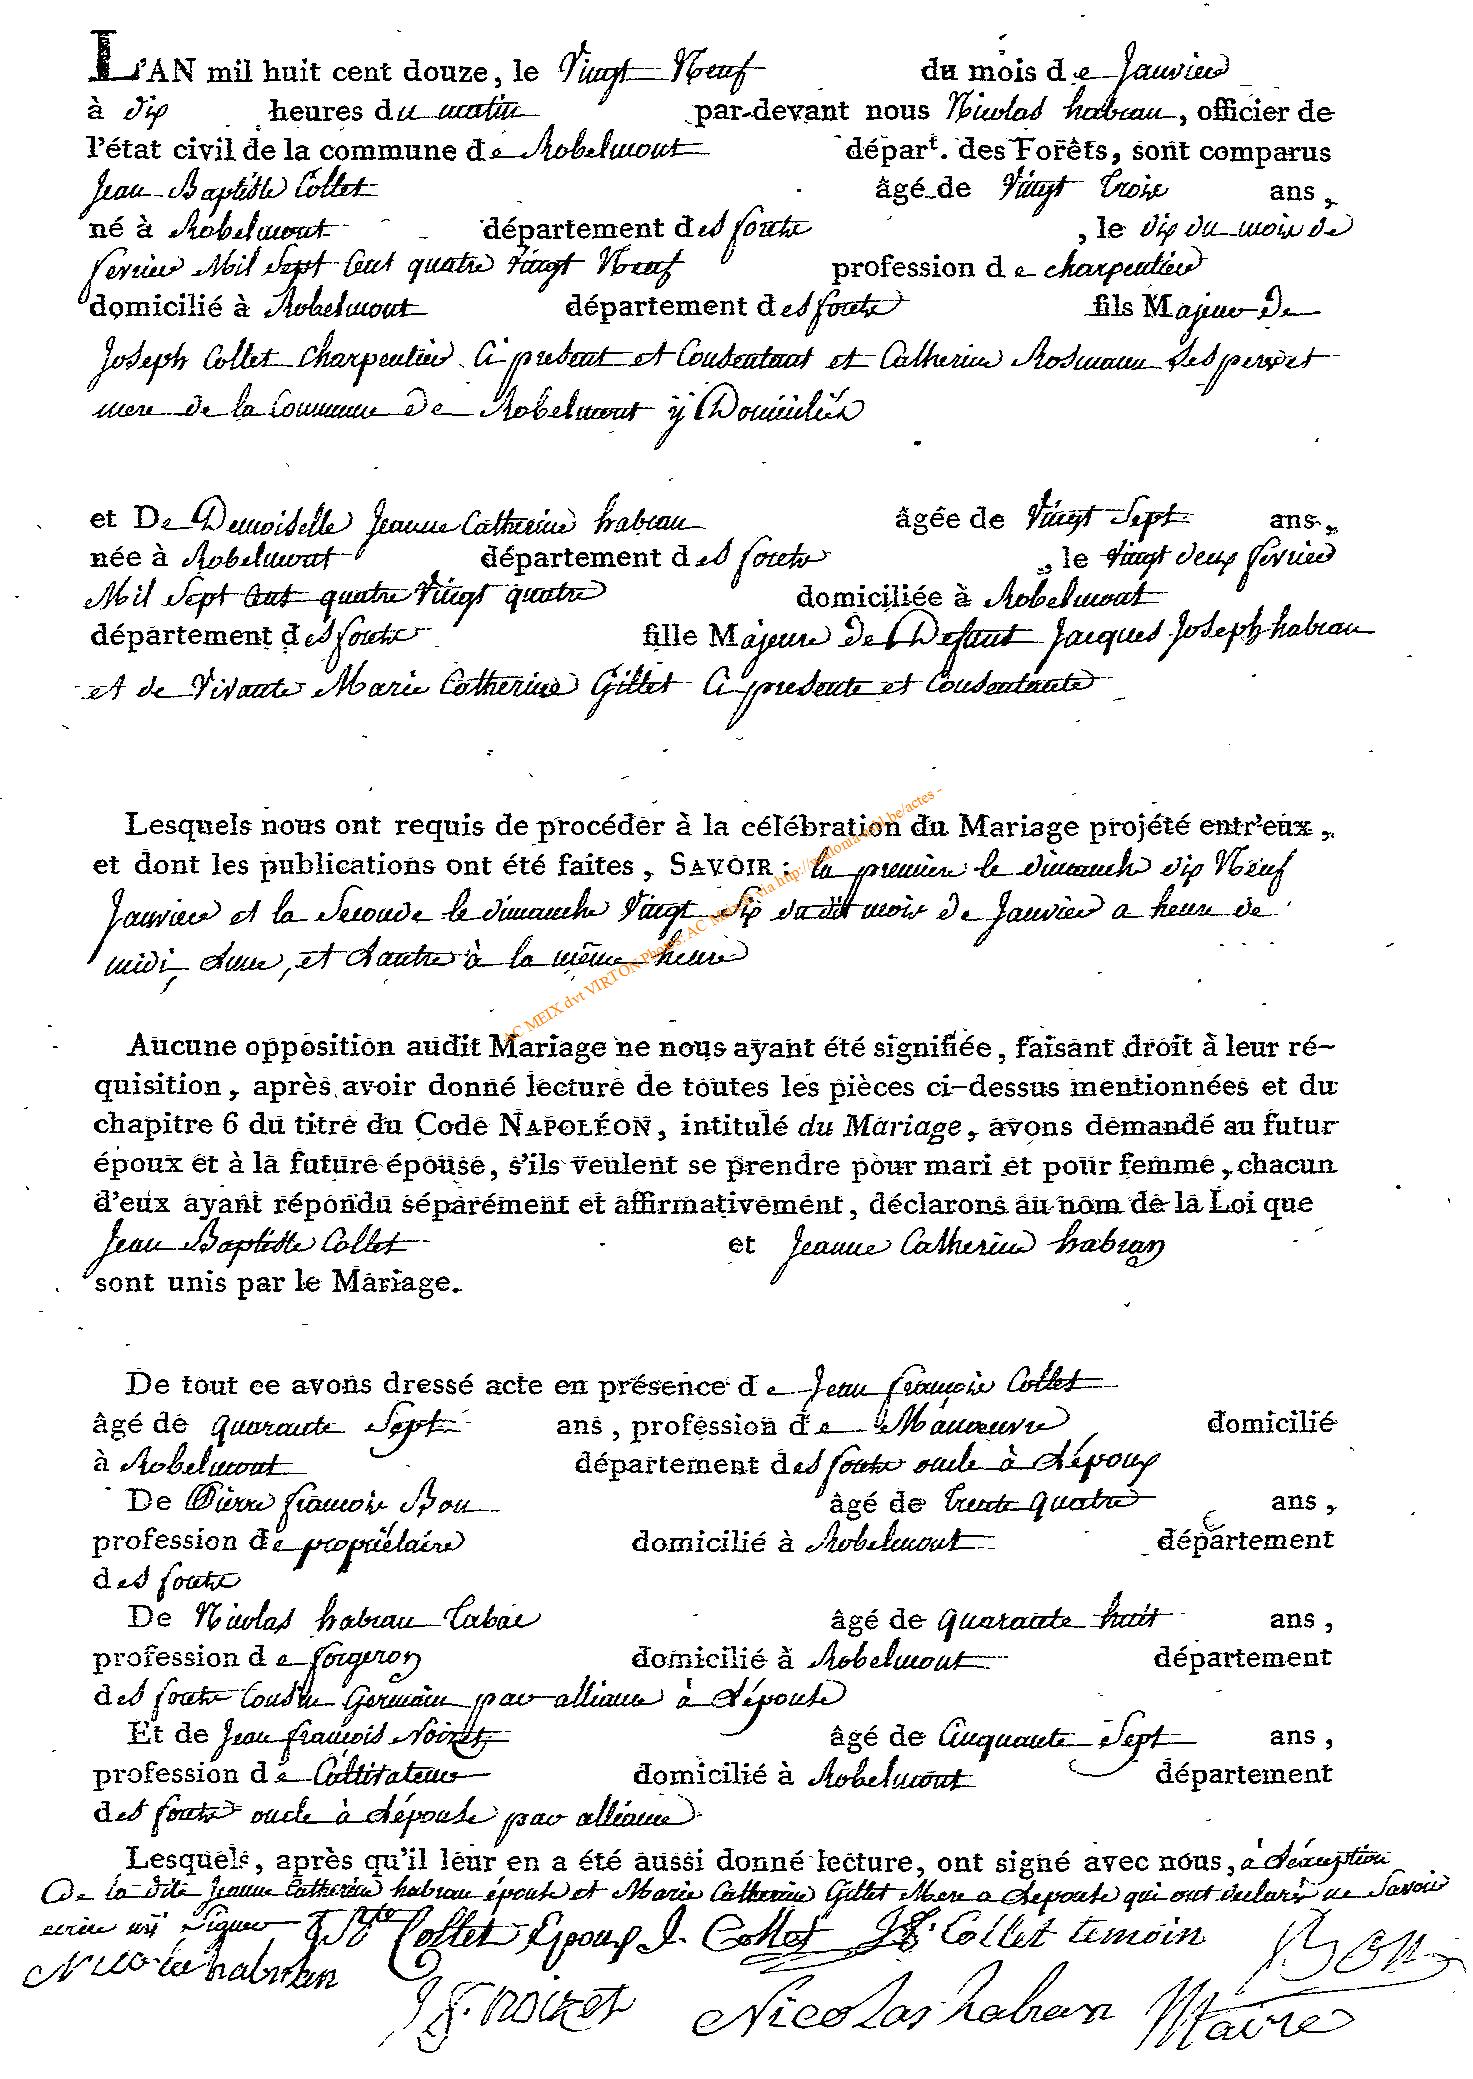 L'AN mil huit cent douze, le Vingt Neuf du mois de Janvier
à dix heures du matin par-devant nous Nicolas habran, officier de
l'état civil de la commune de Robelmont départ. des Forêts, sont comparus
Jean Baptiste Collet âgé de Vingt Trois ans,
né à Robelmont département des forets, le dix du mois de
fevrier Mil Sept Cent quatre vingt Neuf profession de charpentier
domicilié à Robelmont département des forets fils Majeur De
Joseph Collet charpentier Ci present et Consentant et Catherine Rosmann Ses pere et
mere de la Commune De Robelmont ÿ Domiciliés
et De Demoiselle Jeanne Catherine habran âgée de Vingt Sept ans,
née à Robelmont département des forets, le vingt deux fevrier
Mil Sept Cent quatre Vingt quatre domiciliée à Robelmont
département des forets fille Majeure De Defunt Jacques Joseph habran
et de Vivante Marie Catherine Gillet Ci presente et Consentante
Lesquels nous ont requis de procéder à la célébration du Mariage projété entr'eux,
et dont les publications ont été faites, SAVOIR : la premiere le dimanche dix Neuf
Janvier et la Seconde le dimanche Vingt Six du dit mois de Janvier a heure de
midi, dune, et dautre à la même heure
AC MEIX dvt VIRTON Photos: AC MEIX
Aucune opposition audit Mariage ne nous ayant été signifiée, faisant droit à leur ré-
quisition, après avoir donné lecture de toutes les pièces ci-dessus mentionnées et du
chapitre 6 du titre du Code NAPOLÉON, intitulé du Mariage, avons demandé au futur
époux et à la future épouse, s'ils veulent se prendre pour mari et pour femme, chacun
d'eux ayant répondu séparément et affirmativement, déclarons au nom de la Loi que
Jean Baptiste Collet et Jeanne Catherine habran
sont unis par le Mariage.
De tout ce avons dressé acte en présence de Jean françois Collet
âgé de quarante Sept ans, profession de Manœuvre domicilié
à Robelmont département des forets oncle à Lépoux
De Pierre françois Bon âgé de Trente quatre ans,
profession de propriétaire domicilié à Robelmont département
des forets
De Nicolas habran âgé de quarante huit ans,
profession de forgeron domicilié à Robelmont département
des forets Cousin Germain par alliance à Lépouse
Et de Jean françois Noizet âgé de Cinquante Sept ans,
profession de Cultivateur domicilié à Robelmont département
des forets oncle à Lépouse par alliance
Lesquels, après qu'il leur en a été aussi donné lecture, ont signé avec nous, à Léxception
De la dite Jeanne Catherine habran épouse et Marie Catherine Gillet Mere a Lepouse qui ont declaré ne Savoir
ecrire ny Signer J Bte Collet Epoux J. Collet J f. Collet temoin Bon
Nicolas habran
J f. noizet Nicolas habran Maire